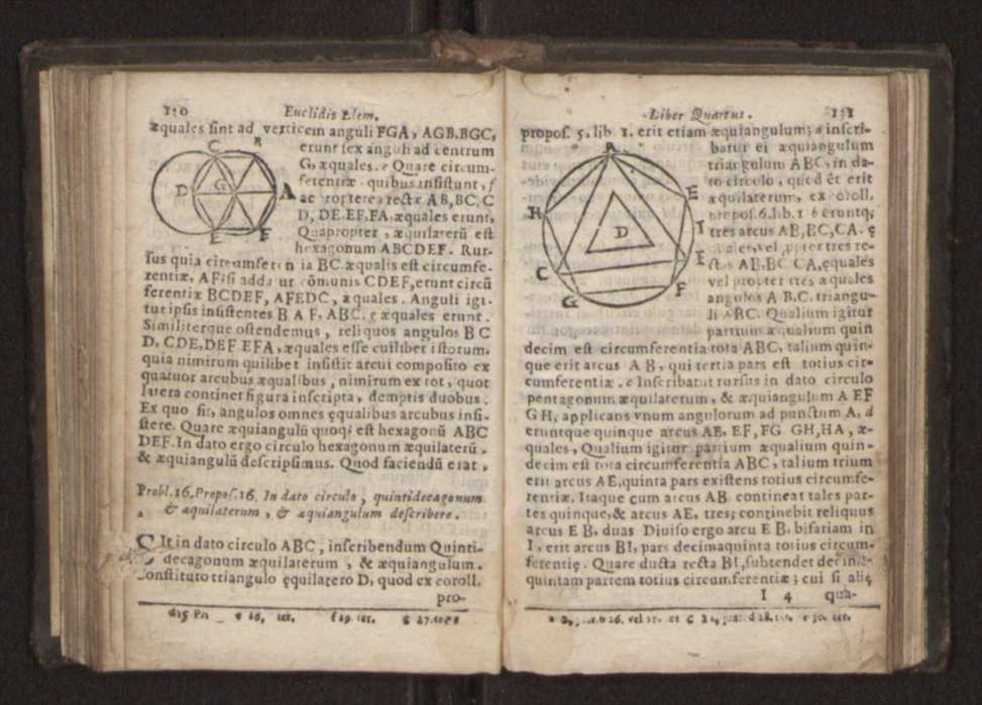 Euclidis Elem.
æquales sint ad verticem anguli FGA, AGB, BGC,
erunt sex anguli ad centrum
G, æquales. e Quare circum-
ferentiæ quibus insistunt, f
ac propterea rectæ AB, BC, C
D, DE, EF, FA, æquales erunt,
Quapropter, æquilaterũ est
hexagonum ABCDEF. Rur-
sus quia circumferentia BC æqualis est circumfe-
rentiæ, AF, si addatur cõmunis CDEF, erunt circũ
ferentiæ BCDEF, AFEDC, æquales. Anguli igi-
tur ipsis insistentes B A F, ABC, g æquales erunt.
Similiterque ostendemus, reliquos angulos B C
D, CDE, DEF EFA, æquales esse cuilibet istorum,
quia nimirum quilibet insistit arcui composito ex
quatuor arcubus æqualibus, nimirum ex tot, quot
latera continet figura inscripta, demptis duobus.
Ex quo fit, angulos omnes ęqualibus arcubus insi-
stere. Quare æquiangulũ quoq; est hexagonũ ABC
DEF. In dato ergo circulo hexagonum æquilaterũ,
& æquiangulũ descripsimus. Quod faciendũ erat,
Probl. 16. Propos. 16. In dato circulo, quintidecagonum
& æquilaterum, & æquiangulum describere.
SIt in dato circulo ABC, inscribendum Quinti-
decagonum æquilaterum, & æquiangulum.
Constituto triangulo ęquilatero D, quod ex coroll.
pro-
C B
D G A
E F
Liber Quartus.
propos. 5. lib 1. erit etiam æquiangulum; a inscri-
batur ei æquiangulum
triangulum ABC, in da-
to circulo, quod et erit
æquilaterum, ex coroll.
propos. 6. lib. 1 b eruntq;
tres arcus AB, BC, CA. ę
quales, vel propter tres re-
ctas AB, BC CA, ęquales
vel propter tres æquales
angulos A B, C, triangu-
li ABC. Qualium igitur
partium æqualium quin
decim est circumferentia tota ABC, talium quin-
que erit arcus A B, qui tertia pars est totius cir-
cumferentiæ. c Inscribatur rursus in dato circulo
pentagonum æquilaterum, & æquiangulum A EF
GH, applicans vnum angulorum ad punctum A, d
eruntque quinque arcus AE, EF, FG GH, HA, æ-
quales, Qualium igitur partium æqualium quin-
decim est tota circumferentia ABC, talium trium
erit arcus AE, quinta pars existens totius circumfe-
rentiæ. Itaque cum arcus AB contineat tales par-
tes quinque, & arcus AE, tres; continebit reliquus
arcus E B, duas Diuiso ergo arcu E B, bifariam in
I, erit arcus BI, pars decimaquinta totius circum-
ferentię. Quare ducta recta BI, subtendet decimā-
quintam partem totius circumferentiæ; cui si alię
I 4 qua-
A
H E
D I
C
G F